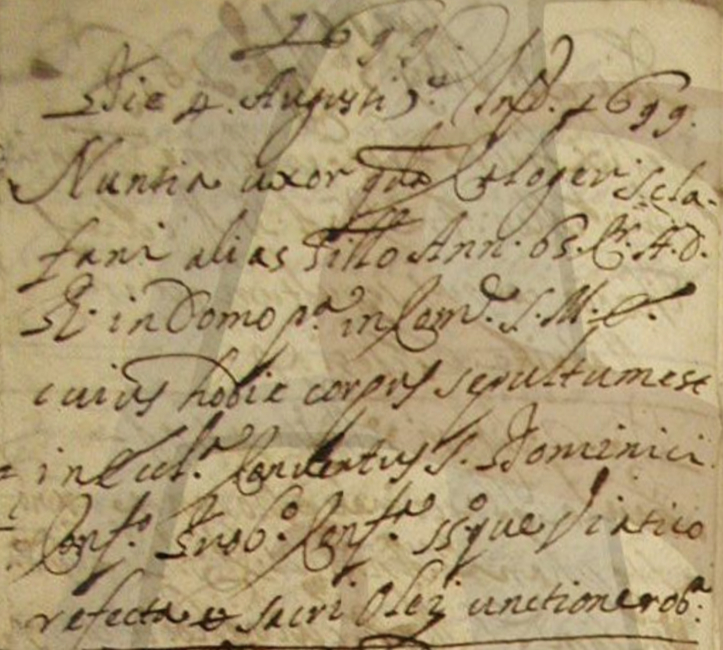 1699.
Die 4. Augusti 7.ᵃ Ind. 1699.
Nuntia uxor qdā Cologeri Scla-
fani alias Sillo Ann. 65. C. A. D.
R. in Domo p.ᵃ in Com. S. M. E.
cuius hodie corpus sepultum est
in Eccl.ᵃ Conventus S. Dominici
Conf. Prob.º Conf.ᵃ SS.º que Viatico
refecta & sacri Olei unctione rob.ᵃ